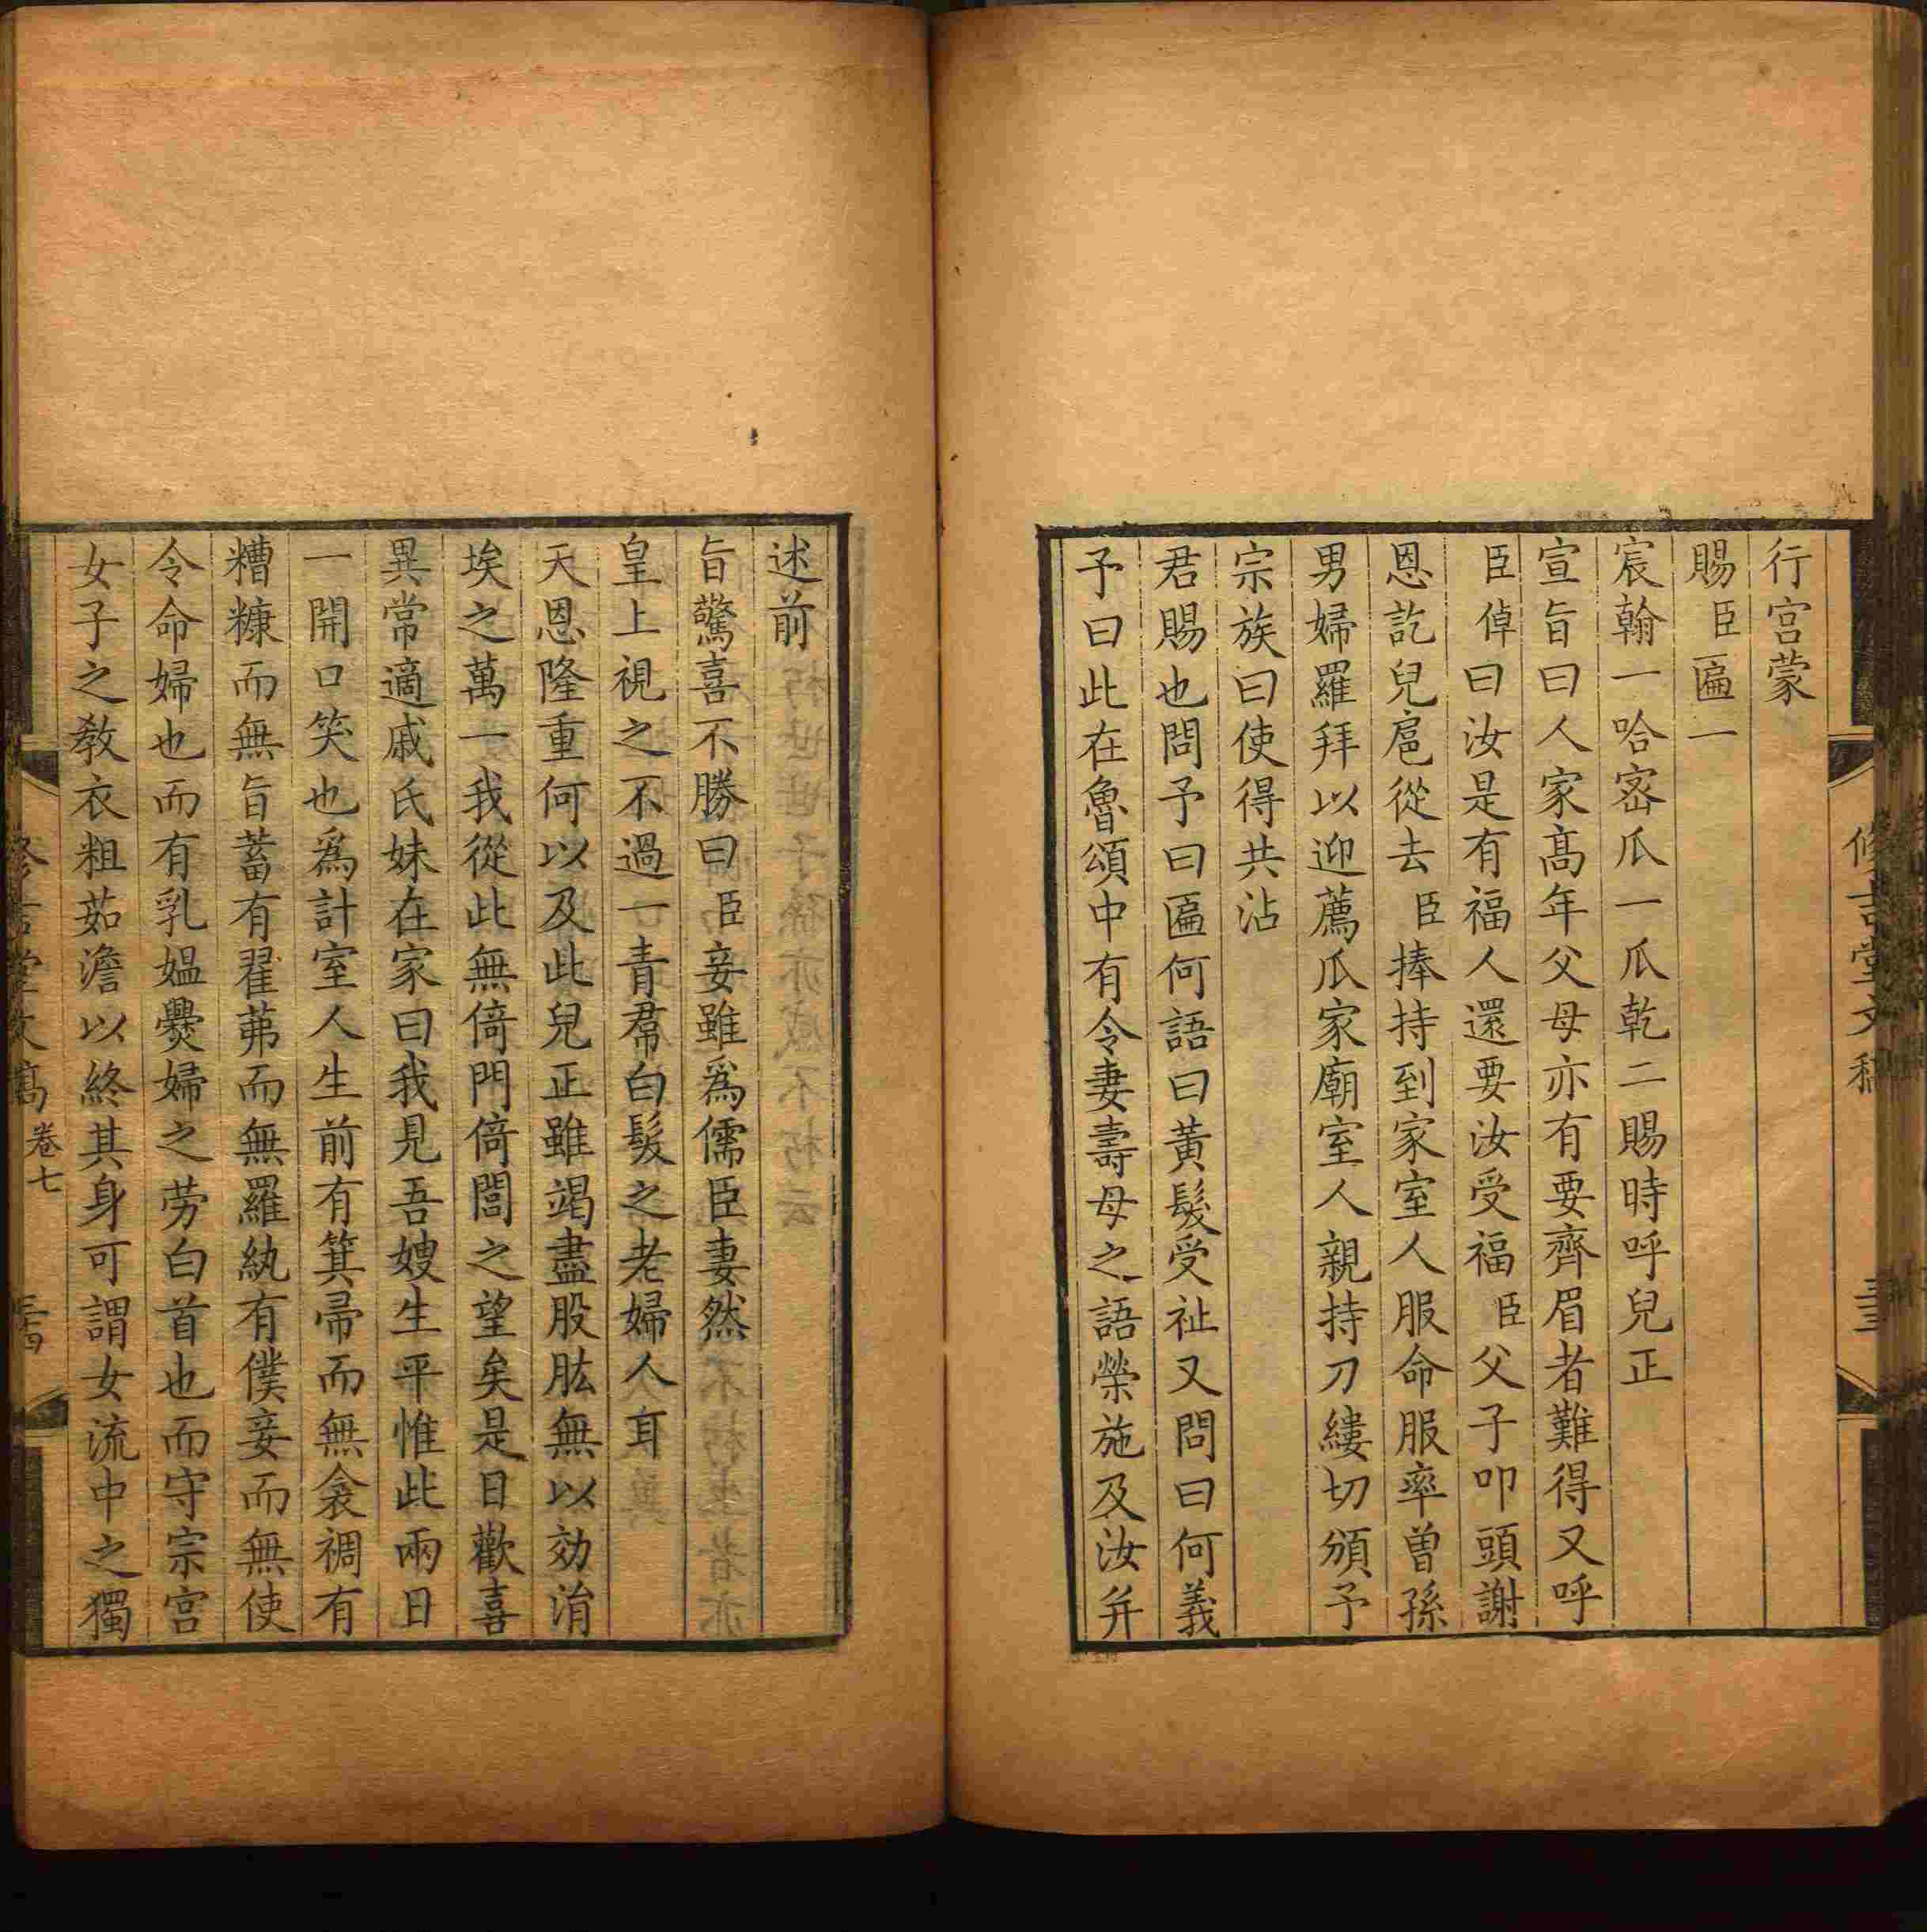 行宫蒙
賜臣匾一
宸翰一哈宻瓜一瓜乾二賜時呼兒正
宣旨曰人家髙年父母亦有要齊眉者難得又呼
臣倬曰汝是有福人還要汝受福臣父子叩頭謝
恩訖兒扈從去臣捧持到家室人服命服率曾孫
男婦羅拜以迎薦瓜家廟室人親持刀縷切頒予
宗族曰使得共沾
君賜也問予曰匾何語曰黃髮受祉又問曰何義
予曰此在魯頌中有令妻壽母之語榮施及汝并
述前
旨驚喜不勝曰臣妾雖爲儒臣妻然
皇上視之不過一青帬白髮之老婦人耳
天恩隆重何以及此兒正雖竭盡股肱無以効涓
埃之萬一我從此無倚門倚閭之望矣是日歡喜
異常適戚氏妹在家曰我見吾嫂生平惟此兩日
一開口笑也爲計室人生前有箕帚而無衾裯有
糟糠而無旨蓄有翟茀而無羅紈有僕妾而無使
令命婦也而有乳媪爨婦之劳白首也而守宗宫
女子之敎衣粗茹澹以終其身可謂女流中之獨
卷七